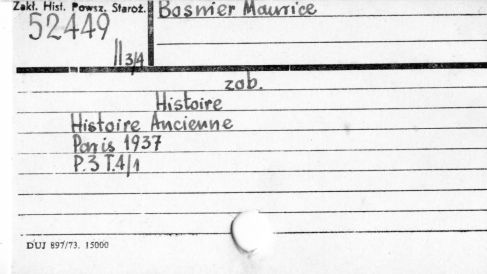 Zakł. Hist. Powsz. Staroż.
Bosnier Maurice
52449
II 3/4
zob.
Histoire
Histoire Ancienne
Paris 1937
P.3 T.4/1
DUJ 897/73. 15000